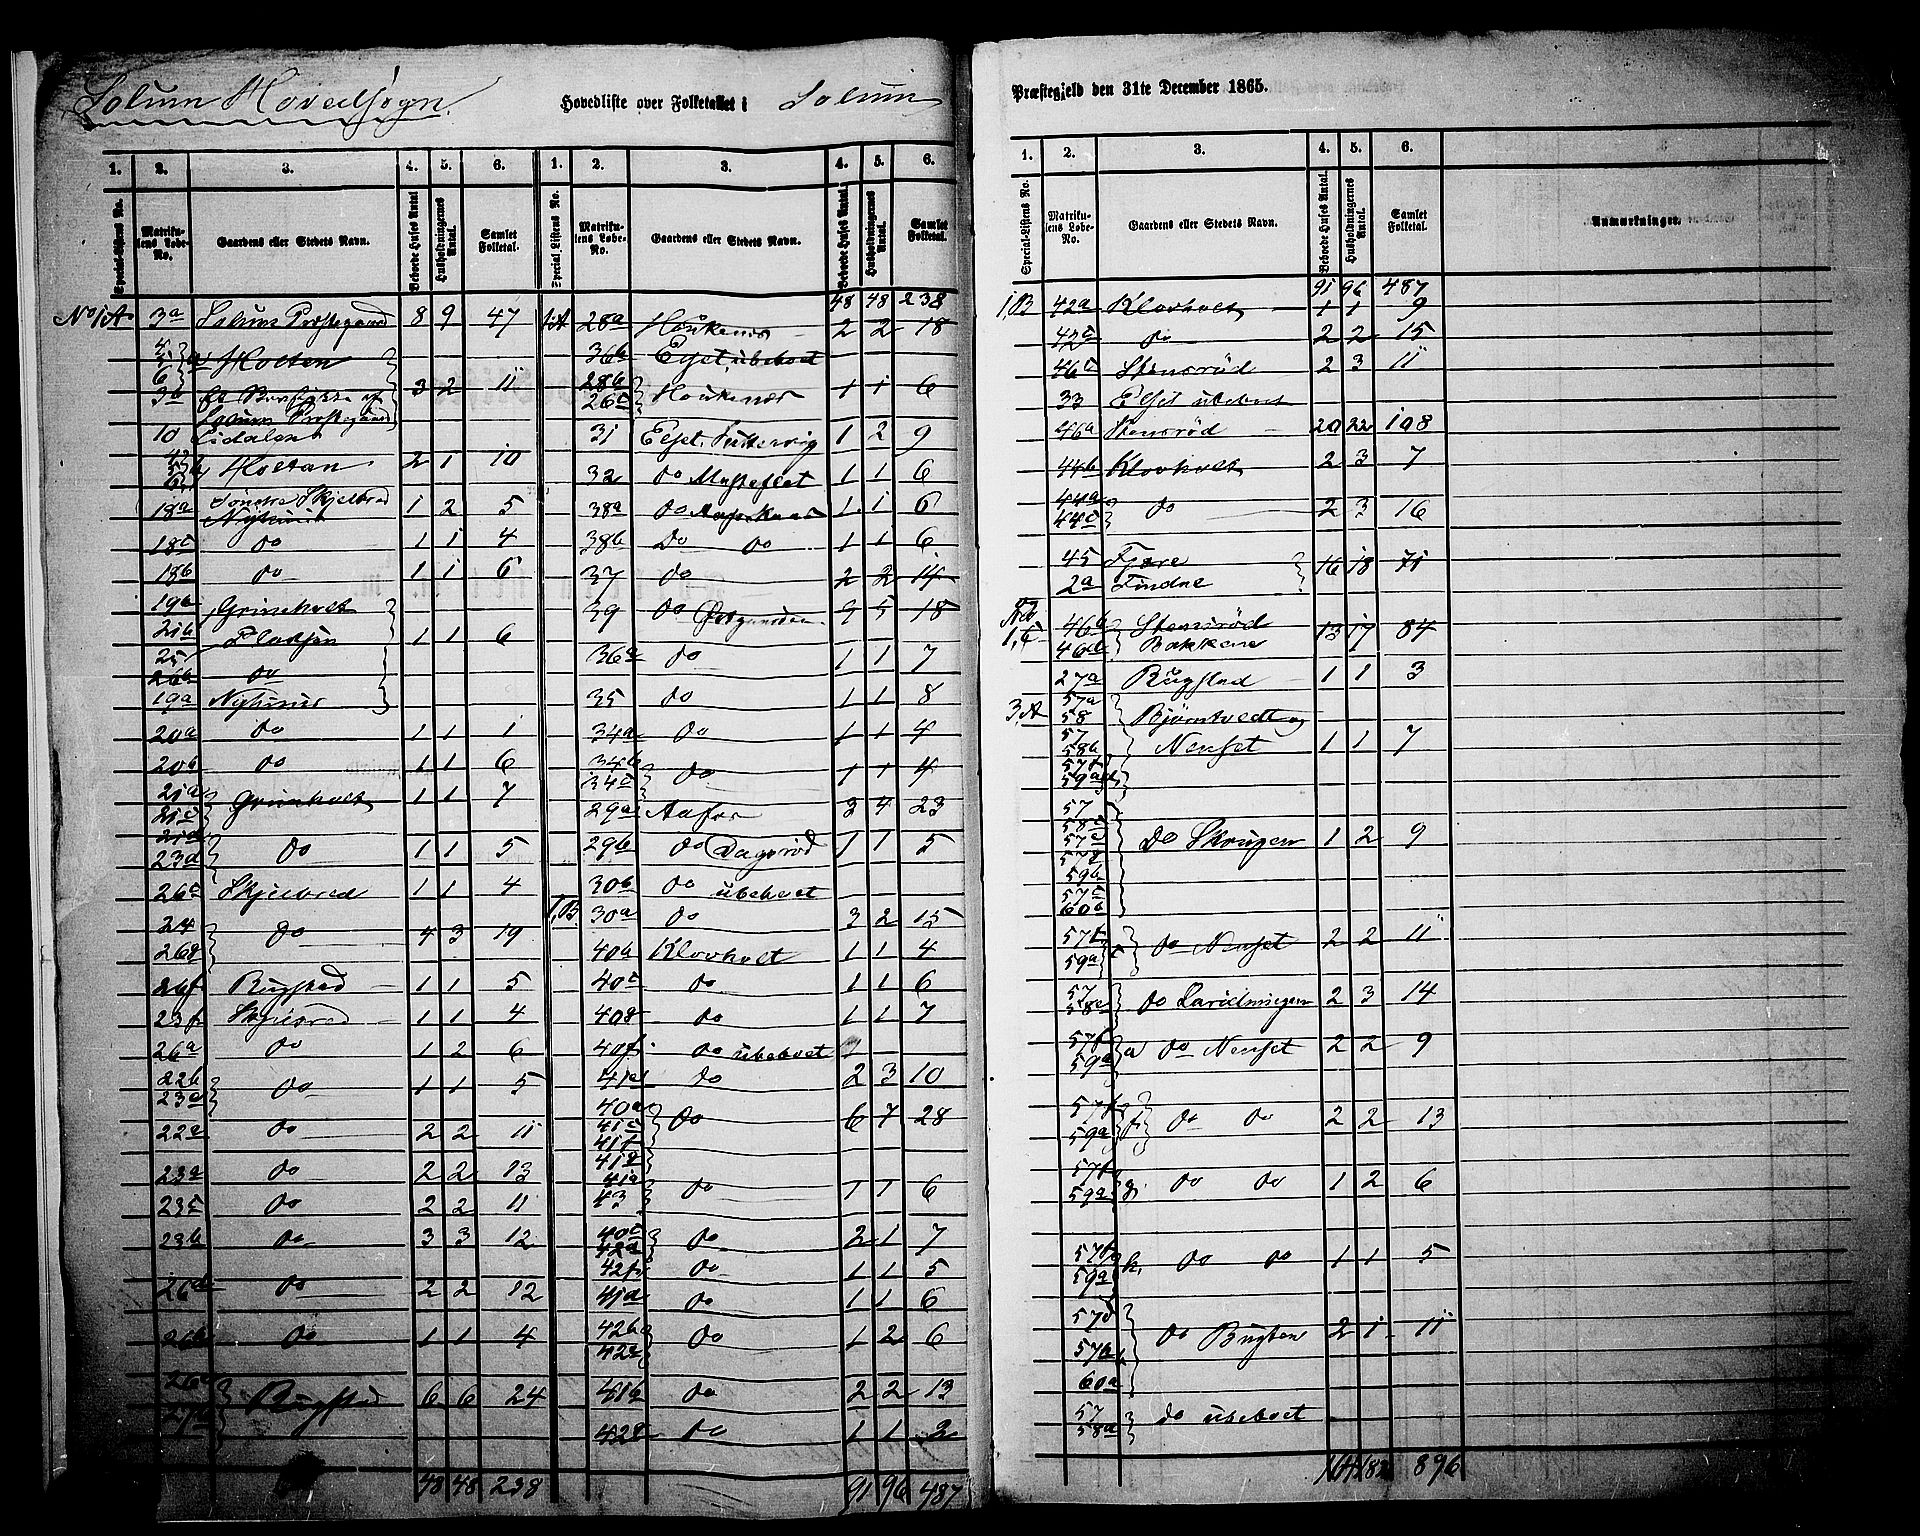 Solum Hovedsogn.
Hovedliste over Folketallet i Solum
Præstegjeld den 31te December 1865.
1. 2. 3. 4. 5. 6. 1. 2. 3. 4. 5. 6.
Special-Listens No. Matrikulens Løbe-No. Gaardens eller Stedets Navn. Beboede Huses Antal Husholdningernes Antal. Samlet Folketal. Special-Listens No. Matrikulens Løbe-No. Gaardens eller Stedets Navn. Beboede Huses Antal. Husholdningernes Antal. Samlet Folketal.
No 1A 3a Solum Præstegaard 8 9 47
4 5 6 a Holten
3b 3 2 11
Solum Præstegaard
10 Lidalen
Holtan 2 1 10
18a Søndre Skjelbred 1 2 5
18c do 1 1 4
18b do 1 1 6
19b Grineholt
21b Pladsen 1 1 6
25
26b do
19a
20a do 1 1 1
20b do 1 1 6
21a
21c Grineholt 1 1 7
21d
23d do 1 1 5
26c Skjelbred 1 1 4
24
26g do 4 3 19
26f Rugstad 1 1 5
23f Skjelbred 1 1 4
26a do 1 2 6
22b
23e do 1 1 5
22a do 2 2 11
23a do 2 2 13
23c do 2 2 11
23b do 3 3 12
26d do 2 2 12
26b do 1 1 4
Rugstad 6 6 24
48 48 238
48 48 238
1A 28a Houkenæs 2 2 18
36b Eqset, ubeboet
28b
26c Houkenæs 1 1 6
31 1 2 9
32 do 1 1 6
38a do 1 1 6
38b Do do 1 1 6
37 do 2 2 14
39 do 5 18
36a do 1 1 7
35 do 1 1 8
34a do 1 1 4
34b
34c do 1 1 4
29a Aafos 3 4 23
29b do Dagsrød 1 1 5
30b do ubeboet
1,B 30a do 3 2 15
40b Klovholt 1 1 4
40c do 1 1 6
40g do 1 1 7
40f do ubeboet
41e do 2 3 10
40a
41c
41f do 6 7 28
41g
41a
43 do 1 1 6
40e
42d do 2 1 7
42f do 1 1 5
41d do 1 1 6
42b
42e do 1 2 6
41b do 2 2 13
42g do 1 1 3
91 96 487
1. 2. 3. 4. 5. 6.
Special-Listens No. Matrikulens Løbe-No. Gaardens eller Stedets Navn. Beboede Huses Antal. Husholdningernes Antal. Samlet Folketal. Anmærkninger.
91 96 487
1,B 42a Klovholt 1 1 9
42c do 2 2 15
46c Stensrød 2 3 11
33 Eqset ubeboet
46a Stensrød 20 22 108
44b Klovholt 2 3 7
44a
44c do 2 3 16
45 Fjære
2a Findal 16 18 71
No 1,C 46b Stensrød
46d Bakkene 13 17 84
27a Rugstad 1 1 3
3,A 57a
58 Bjørntvedt og
57
58b Nenset 1 1 7
57f
59a
57
58c
57e Do Skrugen 1 2 9
57f
59b
57c
60b
57f
59a c do Nenset 2 2 11
57
58e do 2 3 14
57f
59a a do Nenset 2 2 9
57f
59a f do do 2 2 13
57f
59a g do do 1 2 6
57f
59a h. do do 1 1 5
57d
57b do Bugten 2 1 11
60a
57
58d do ubeboet
896